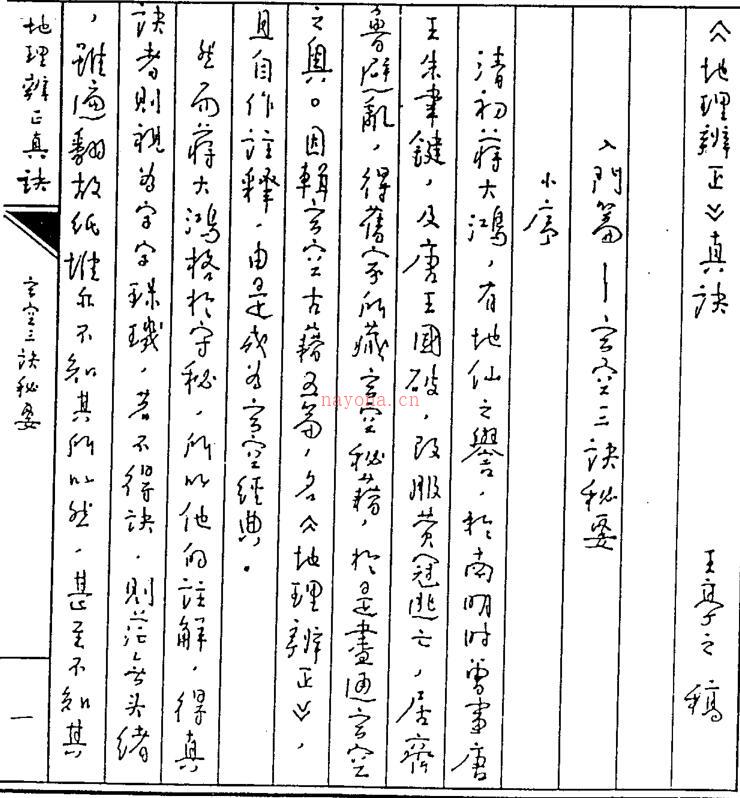 《地理辨正》真訣
王亭之 稿
入門篇—玄空三訣秘要
小序
清初蔣大鴻，有地仙之譽，於南明時曾事唐
王朱聿鍵，及唐王國破，改服黃冠逃亡，居齊
魯避亂，得舊家所藏玄空秘藉，於是盡通玄空
之奧。因輯玄空古藉五篇，名《地理辨正》，
且自作註釋，由是成為玄空經典。
然而蔣大鴻格於守秘，所以他的註解，得真
訣者則視為字字珠璣，若不得訣，則茫無头緒
，雖遍翻故紙堆亦不知其所以然，甚至不知其
地理辨正真訣
玄空三訣秘要
一
nayona.cn